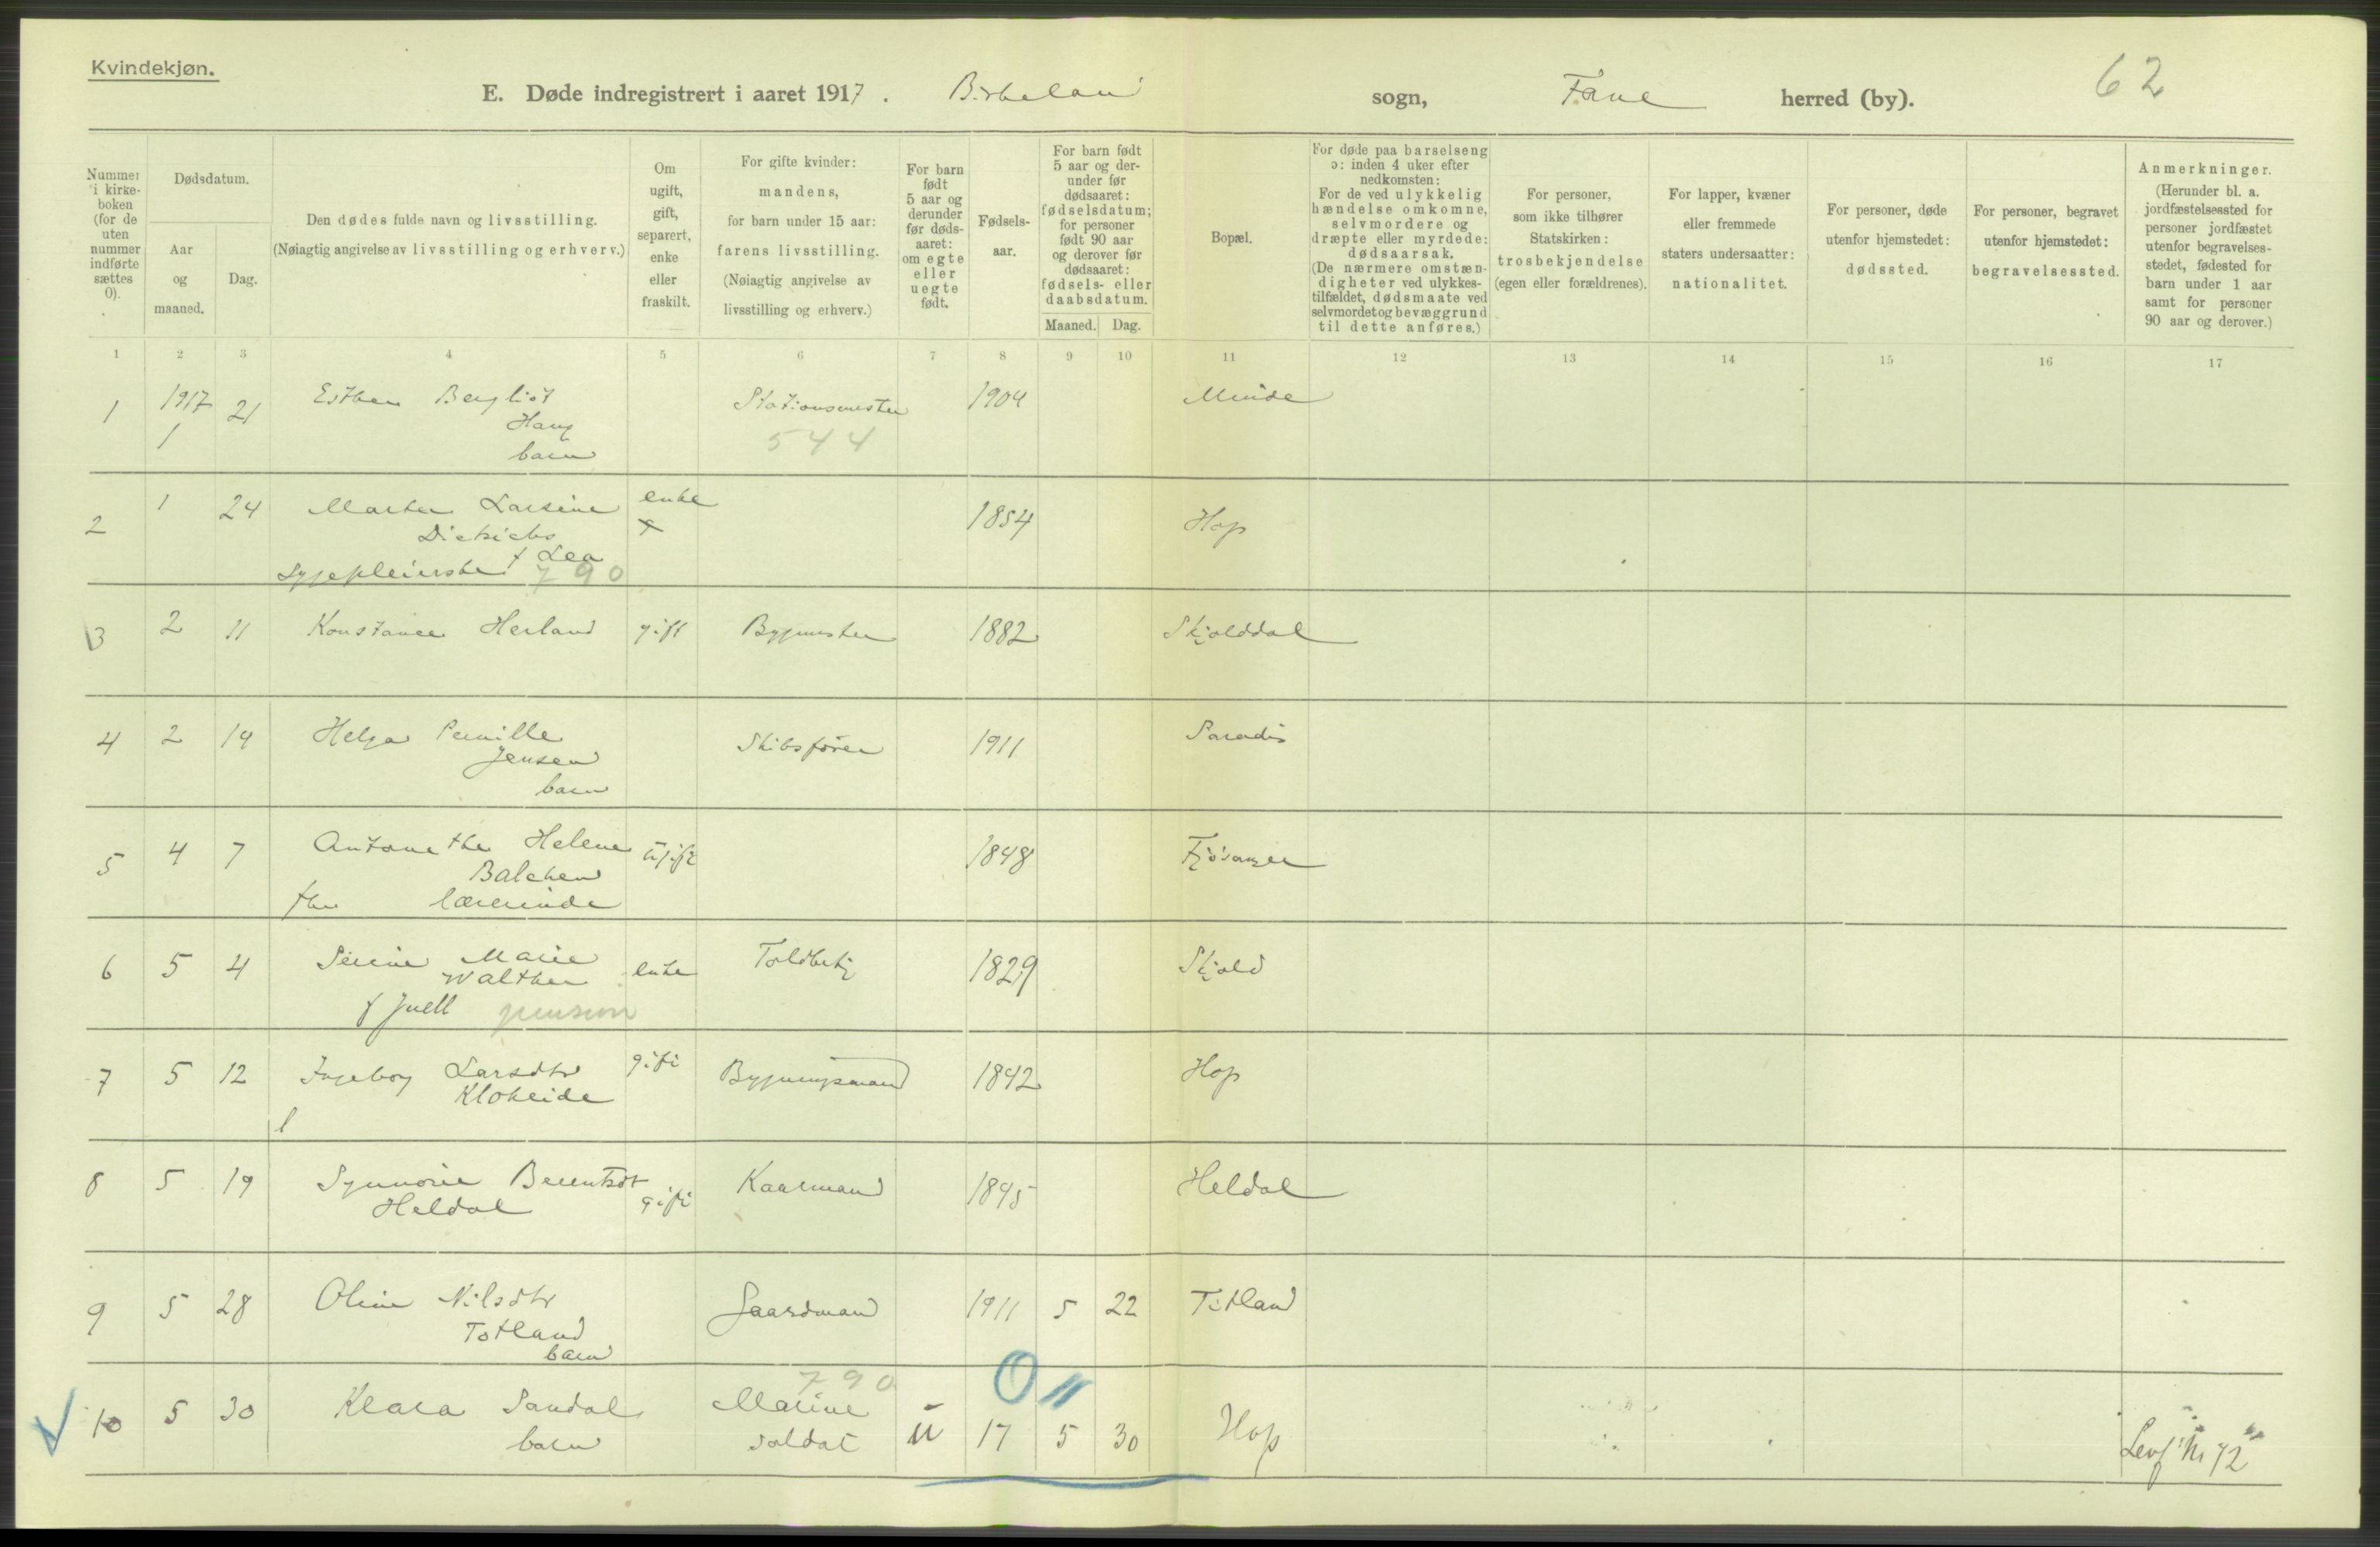 Kvindekjøn.
E. Døde indregistrert i aaret 1917. Birkeland sogn, Fane herred (by). 62
Nummer i kirke-boken (for de uten nummer indførte sættes 0).
Dødsdatum.
Aar og maaned.
Dag.
Den dødes fulde navn og livsstilling.
(Nøiagtig angivelse av livsstilling og erhverv.)
Om ugift, gift, separert, enke eller fraskilt.
For gifte kvinder: mandens, for barn under 15 aar: farens livsstilling. (Nøiagtig angivelse av livsstilling og erhverv.)
For barn født 5 aar og derunder før døds-aaret: om egte eller uegte født.
Fødsels-aar.
For barn født 5 aar og der-under før dødsaaret: fødselsdatum; for personer født 90 aar og derover før dødsaaret: fødsels- eller daabsdatum.
Maaned. Dag.
Bopæl.
For døde paa barselseng ɔ: inden 4 uker efter nedkomsten: For de ved ulykkelig hændelse omkomne, selvmordere og dræpte eller myrdede: dødsaarsak. (De nærmere omstæn-digheter ved ulykkes-tilfældet, dødsmaate ved selvmordet og bevæggrund til dette anføres.)
For personer, som ikke tilhører Statskirken: trosbekjendelse (egen eller forældrenes).
For lapper, kvæner eller fremmede staters undersaatter: nationalitet.
For personer, døde utenfor hjemstedet: dødssted.
For personer, begravet utenfor hjemstedet: begravelsessted.
Anmerkninger. (Herunder bl. a. jordfæstelsessted for personer jordfæstet utenfor begravelses-stedet, fødested for barn under 1 aar samt for personer 90 aar og derover.)
1 2 3 4 5 6 7 8 9 10 11 12 13 14 15 16 17
1 1917 1 21 Esther Bergliot Stationsmester 1904 Minde
Haug 544
barn
2 1 24 Marta Larsine enke 1854 Hop
Lea
Sygepleierske 790
3 2 11 Konstance Herland gift Bygmester 1882 Skjolddal
4 2 19 Helga Pernille Skibsfører 1911 Paradis
Jensen
barn
5 4 7 Antonethe Helene ugift 1848 Fjøsanger
Balchen
lærerinde
6 5 4 Serine Marie enke Toldbetj 1829 Skjold
Walther
f Juell pension
7 5 12 Ingeborg Larsdtr gift Bygningsmand 1842 Hop
Klokeide
8 5 19 Synnøve Berentsdt gift Kaarmand 1845 Heldal
Heldal
9 5 28 Oline Nilsdtr Gaardmand 1911 5 22 Totland
Totland
barn
790 0 11
10 5 30 Klara Sandal Marine u 17 5 30 Hop
barn soldat Levf Nr 72